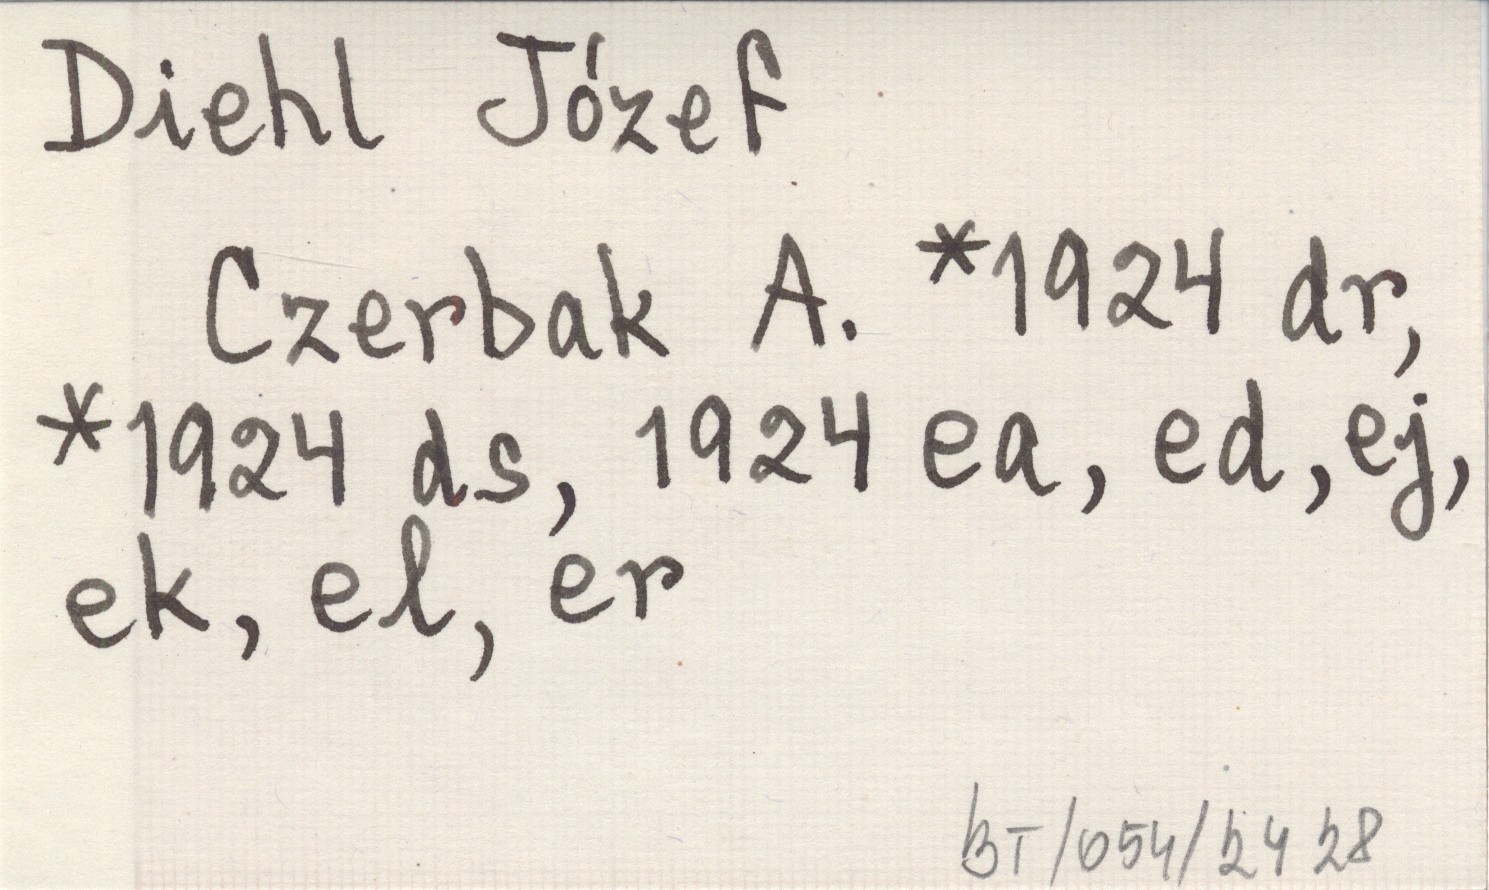 Diehl Józef
Czerbak A. *1924 dr,
*1924 ds, 1924 ea, ed, ej,
ek, el, er
BT/054/2428